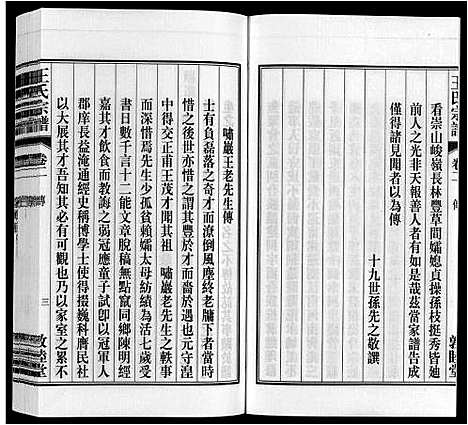 王氏宗譜
卷二
傳
敦睦堂
看崇山峻嶺長林豐草間孀媳貞操孫枝挺秀皆廸
前人之光天報善人者有如是哉茲當家譜告成
僅得諸見聞者以為傳
十九世孫先之敬譔
嘯巖王老先生傳
士有負磊落之奇才而潦倒風塵終老牖下者當時
惜之後世亦惜之謂其豐于才而嗇於遇也元守湟
中得交正甫王茂才聞其祖 嘯巖老先生之軼事
而深惜焉先生少孤貧賴孀太母紡績為活七歲受
書日數千言十二能文章脫稿無點竄同鄉陳明經
其才飲食而教誨之弱冠應童子試即以冠軍入
郡庠長益淹通經史稱博學士使得掇巍科膺民社
以大展其才吾知其必有可觀已乃以家室之累不
王氏宗譜
卷
傳
三
敦睦堂